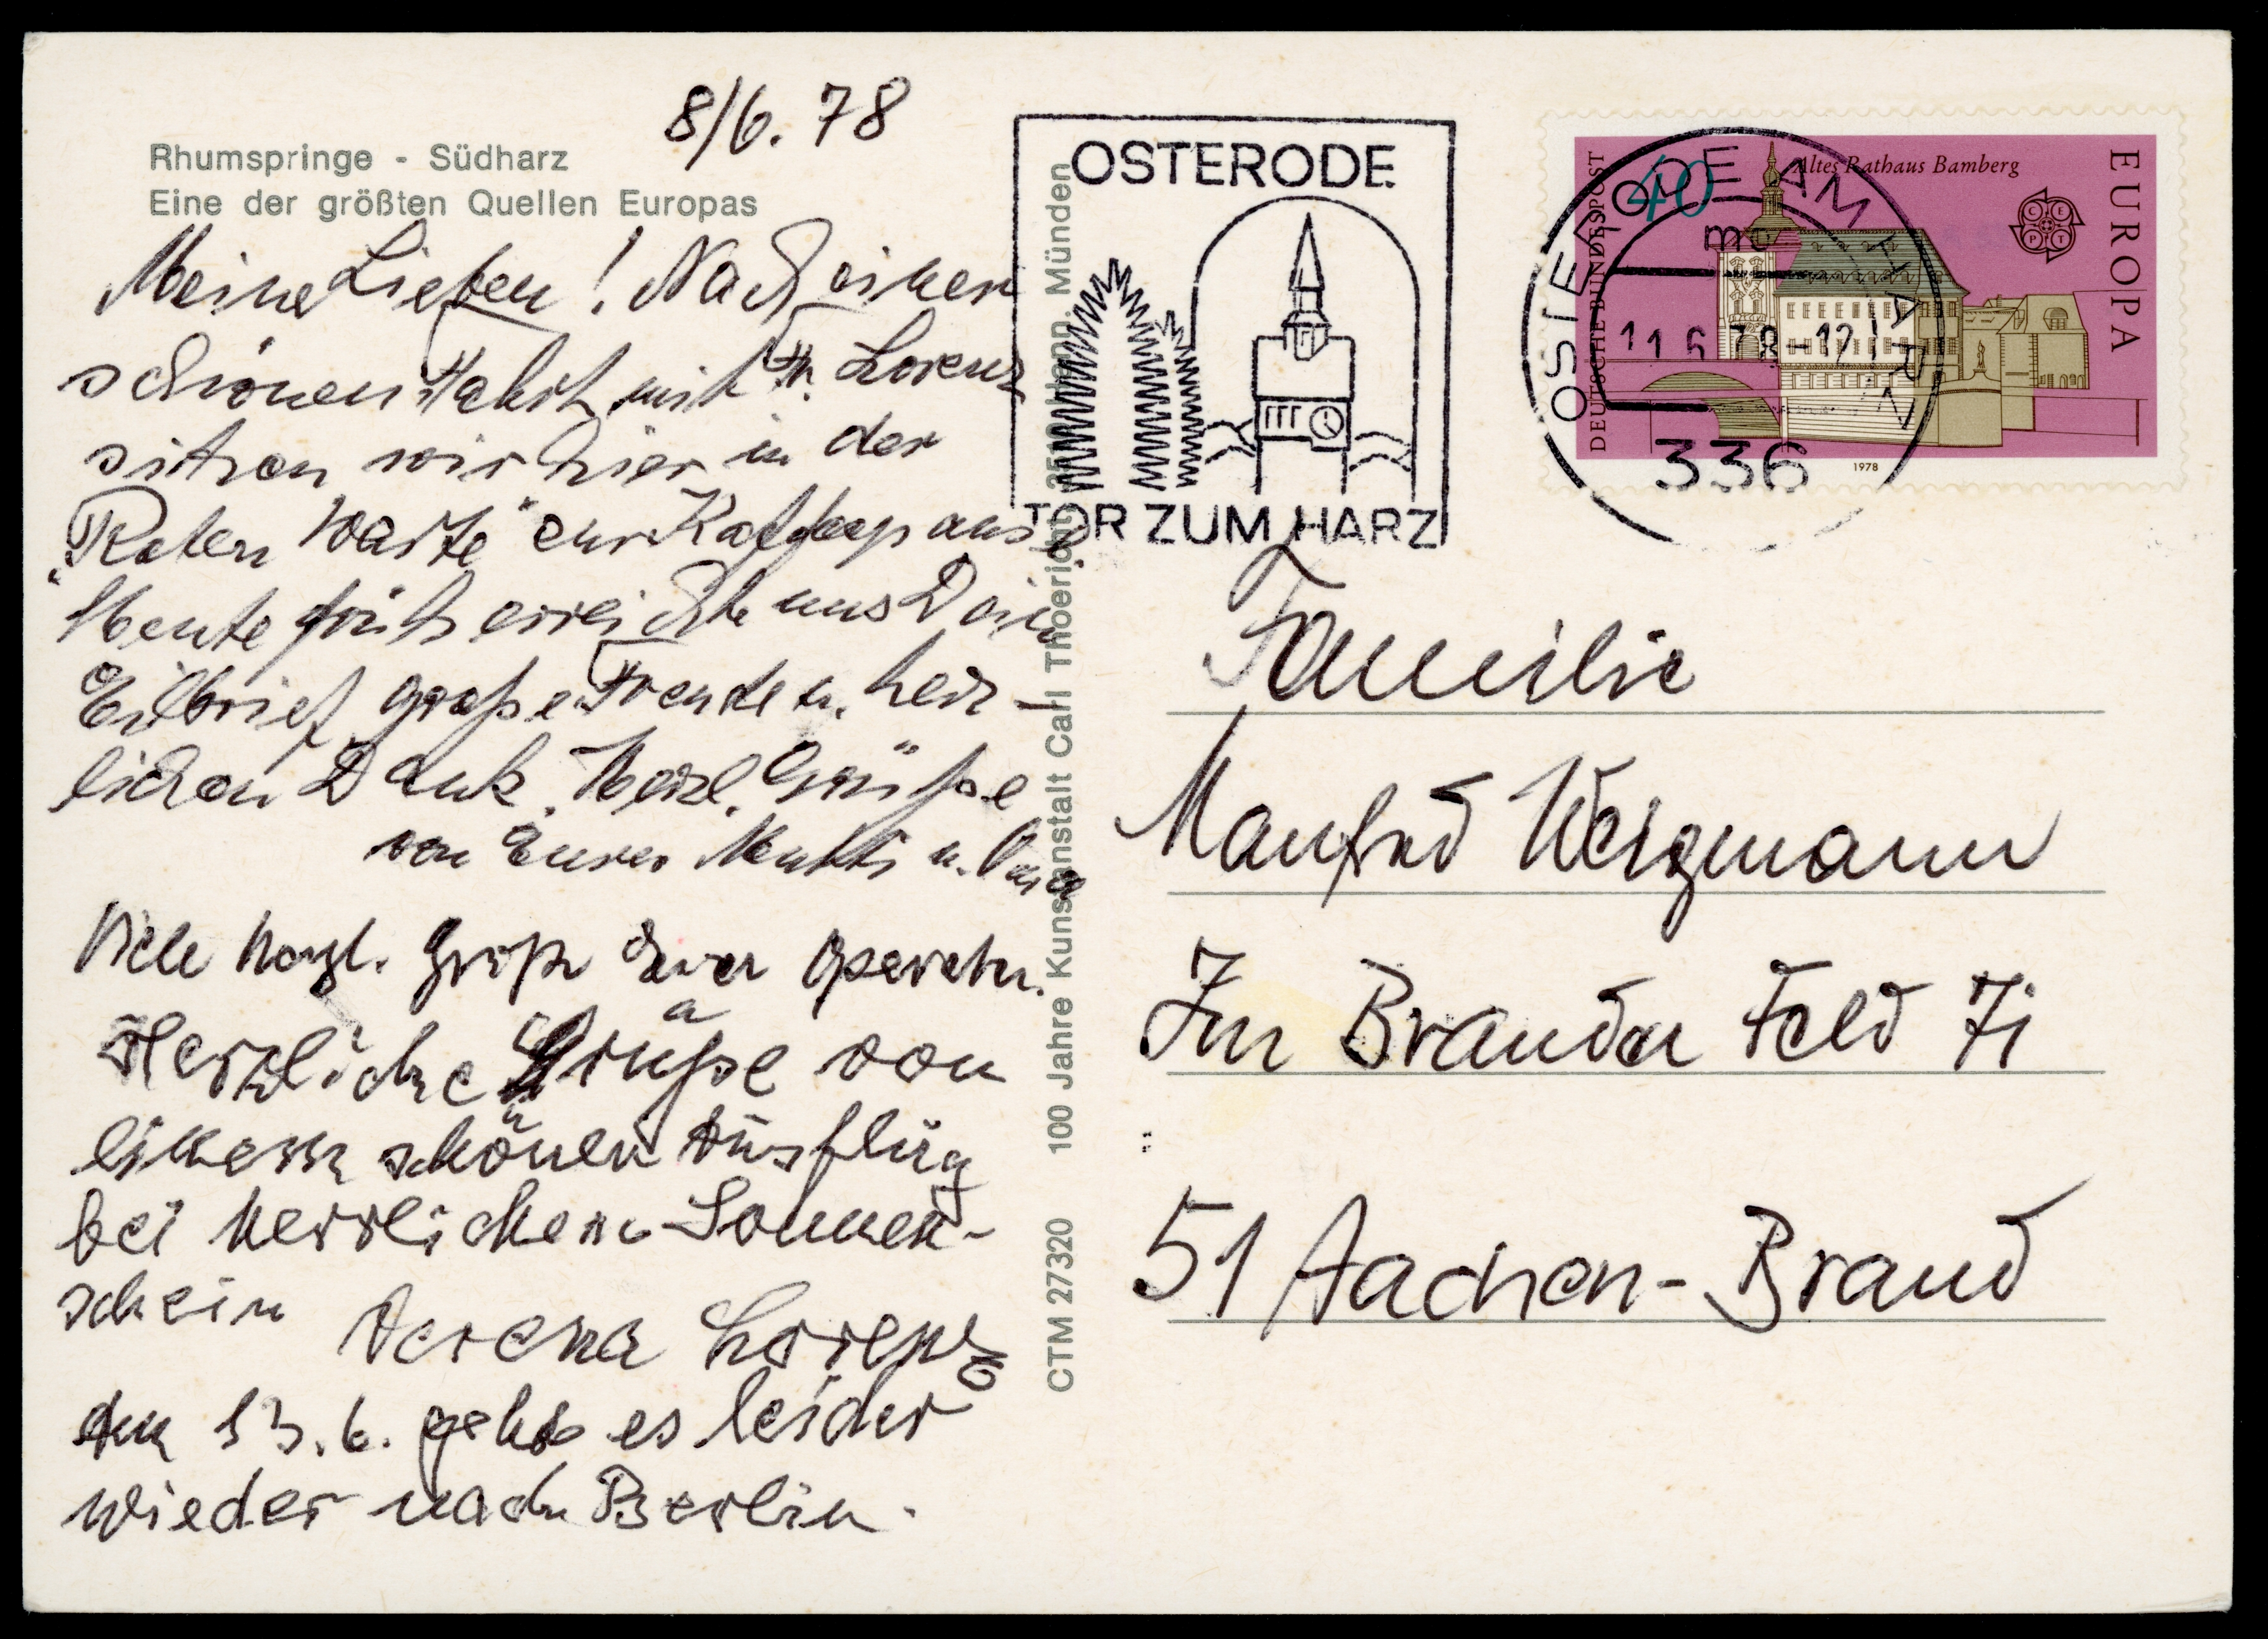 8/6. 78
Rhumspringe - Südharz
Eine der größten Quellen Europas
Meine Lieben! Nach einer
schönen Fahrt mit Fr. Lorenz
sitzen wir hier in der
"Roten Warte" zur Kaffeepause
Heute früh erreichte uns Dein
Eilbrief große Freude u. herz-
lichen Dank. Herzl. Grüße
von Eurer Mutti u.
Viele herzl. Grüße Euer
Herzliche Grüße von
einem schönen Ausflug
bei herrlichem Sonnen-
schein Verena Lorenz
Am 13.6. geht es leider
wieder nach Berlin.
CTM 27320 100 Jahre Kunstanstalt Carl Thoericht, Münden
OSTERODE
TOR ZUM HARZ
OSTERODE AM HARZ
11 6 78-12
336
DEUTSCHE BUNDESPOST
40
Altes Rathaus Bamberg
CEPT
EUROPA
1978
Familie
Manfred Wergmann
Im Brander Feld 7i
51 Aachen-Brand